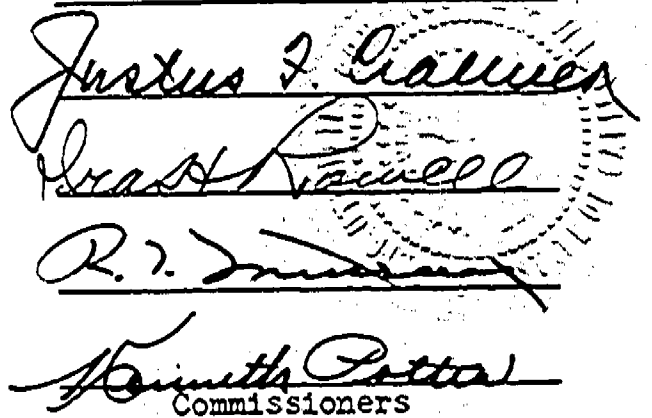 Justus F. Craemer
Ira H Rowell
R. F.
Kenneth Potter
Commissioners